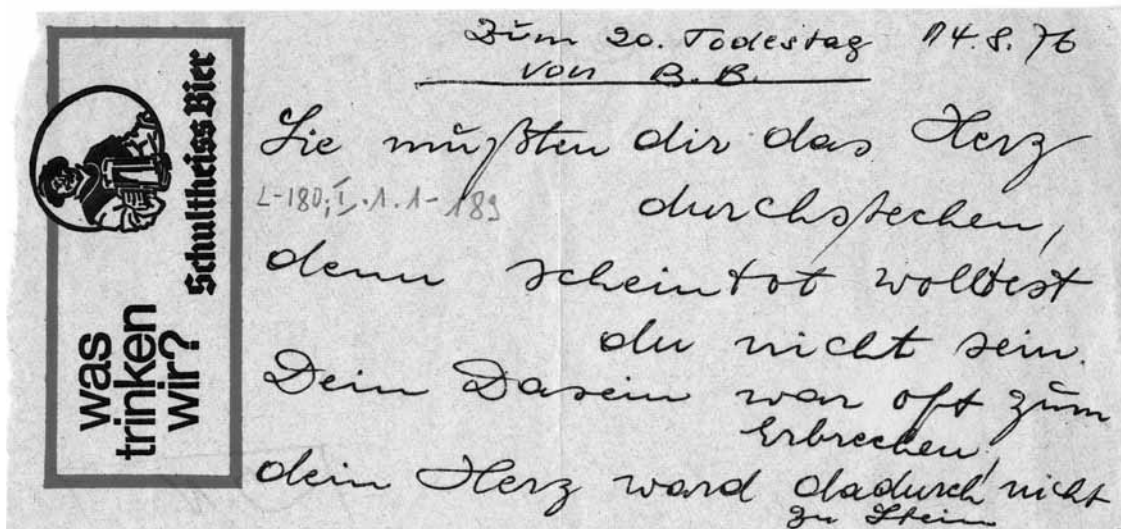 was
trinken
wir?
Schultheiss Bier
Zum 20. Todestag 14.8.76
von B.B.
Sie mußten dir das Herz
L-180, I, 1.1-189
durchstechen,
denn scheintot wolltest
du nicht sein.
Dein Dasein war oft zum
Erbrechen,
dein Herz ward dadurch nicht
zu Stein